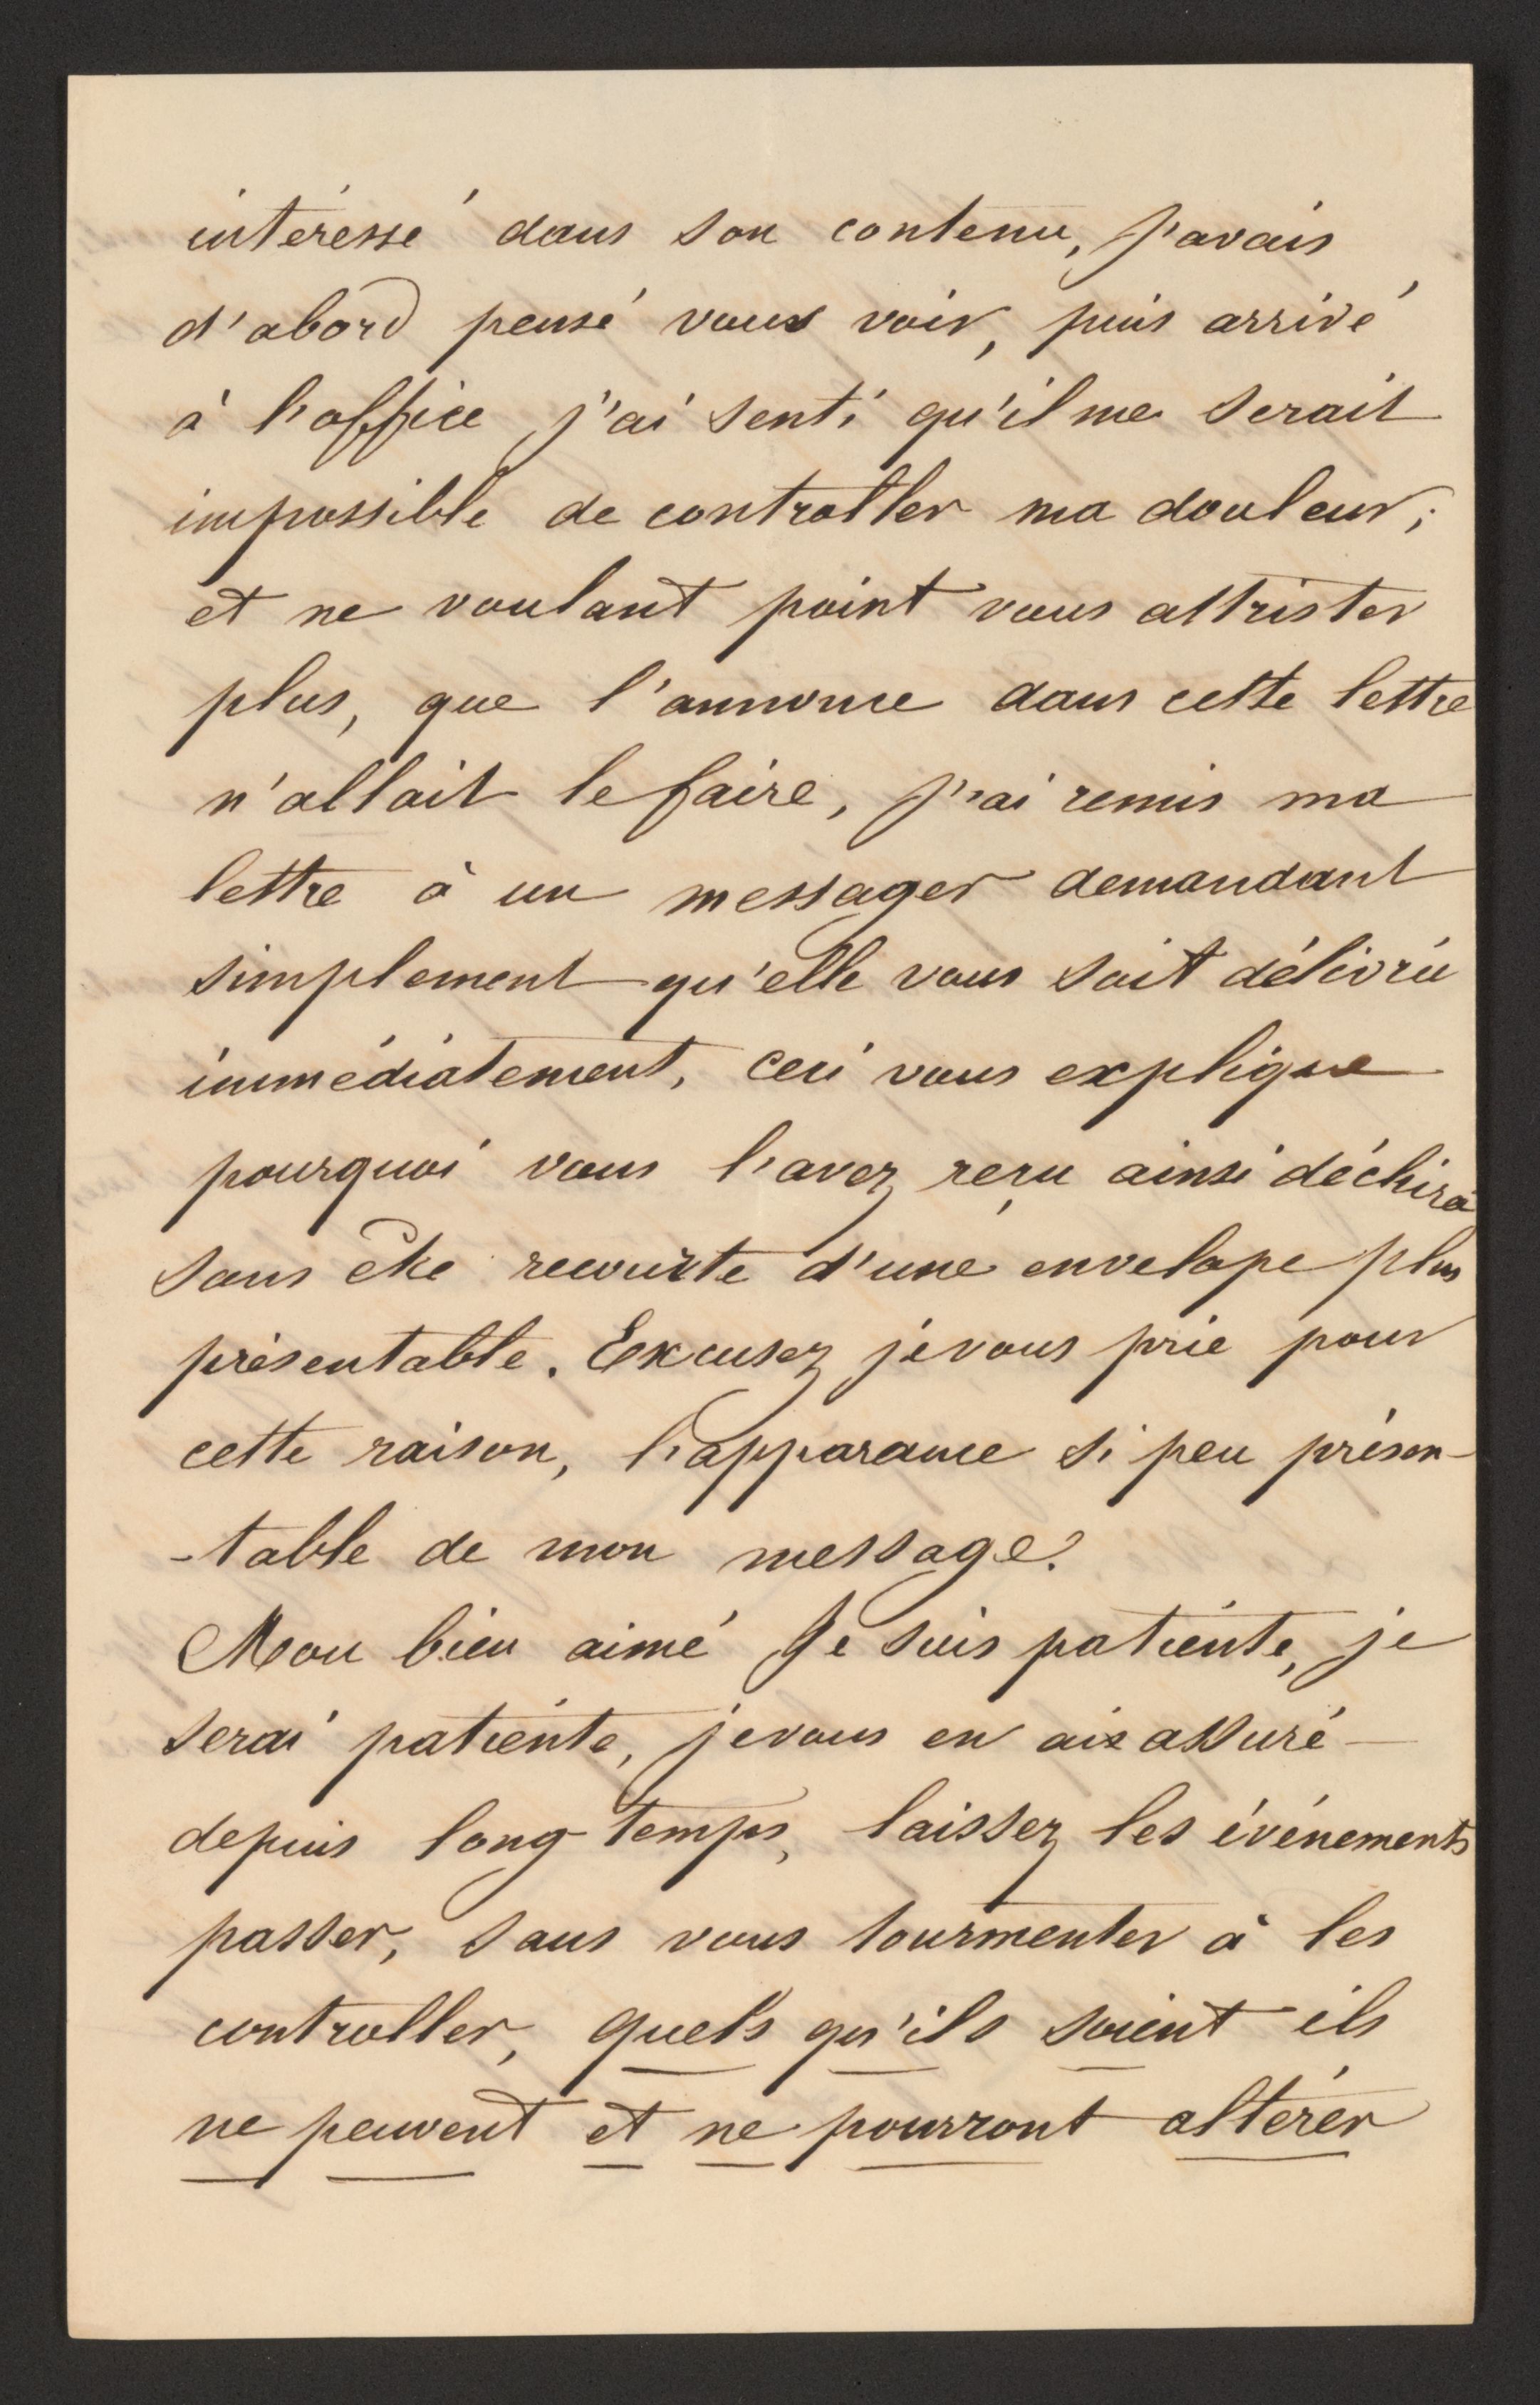 intéressé dans son contenu, j'avais
d'abord pensé vous voir, puis arrivé
à l'office j'ai senti qu'il me serait
impossible de controller ma douleur;
et ne voulant point vous attrister
plus, que l'annonce dans cette lettre
n'allait le faire, j'ai remis ma
lettre à un messager demandant
simplement qu'elle vous soit délivrée
immédiatement, ceci vous explique
pourquoi vous l'avez reçu ainsi déchiré
sans être recouverte d'une envelope plus
présentable. Excusez je vous prie pour
cette raison, l'apparance si peu présen-
-table de mon message.
Mon bien aimé Je suis patiente, je
serai patiente, je vous en ai assuré
depuis long temps, laissez les événements
passer, sans vous tourmenter à les
controller, quels qu'ils soient ils
ne peuvent et ne pourront altérer